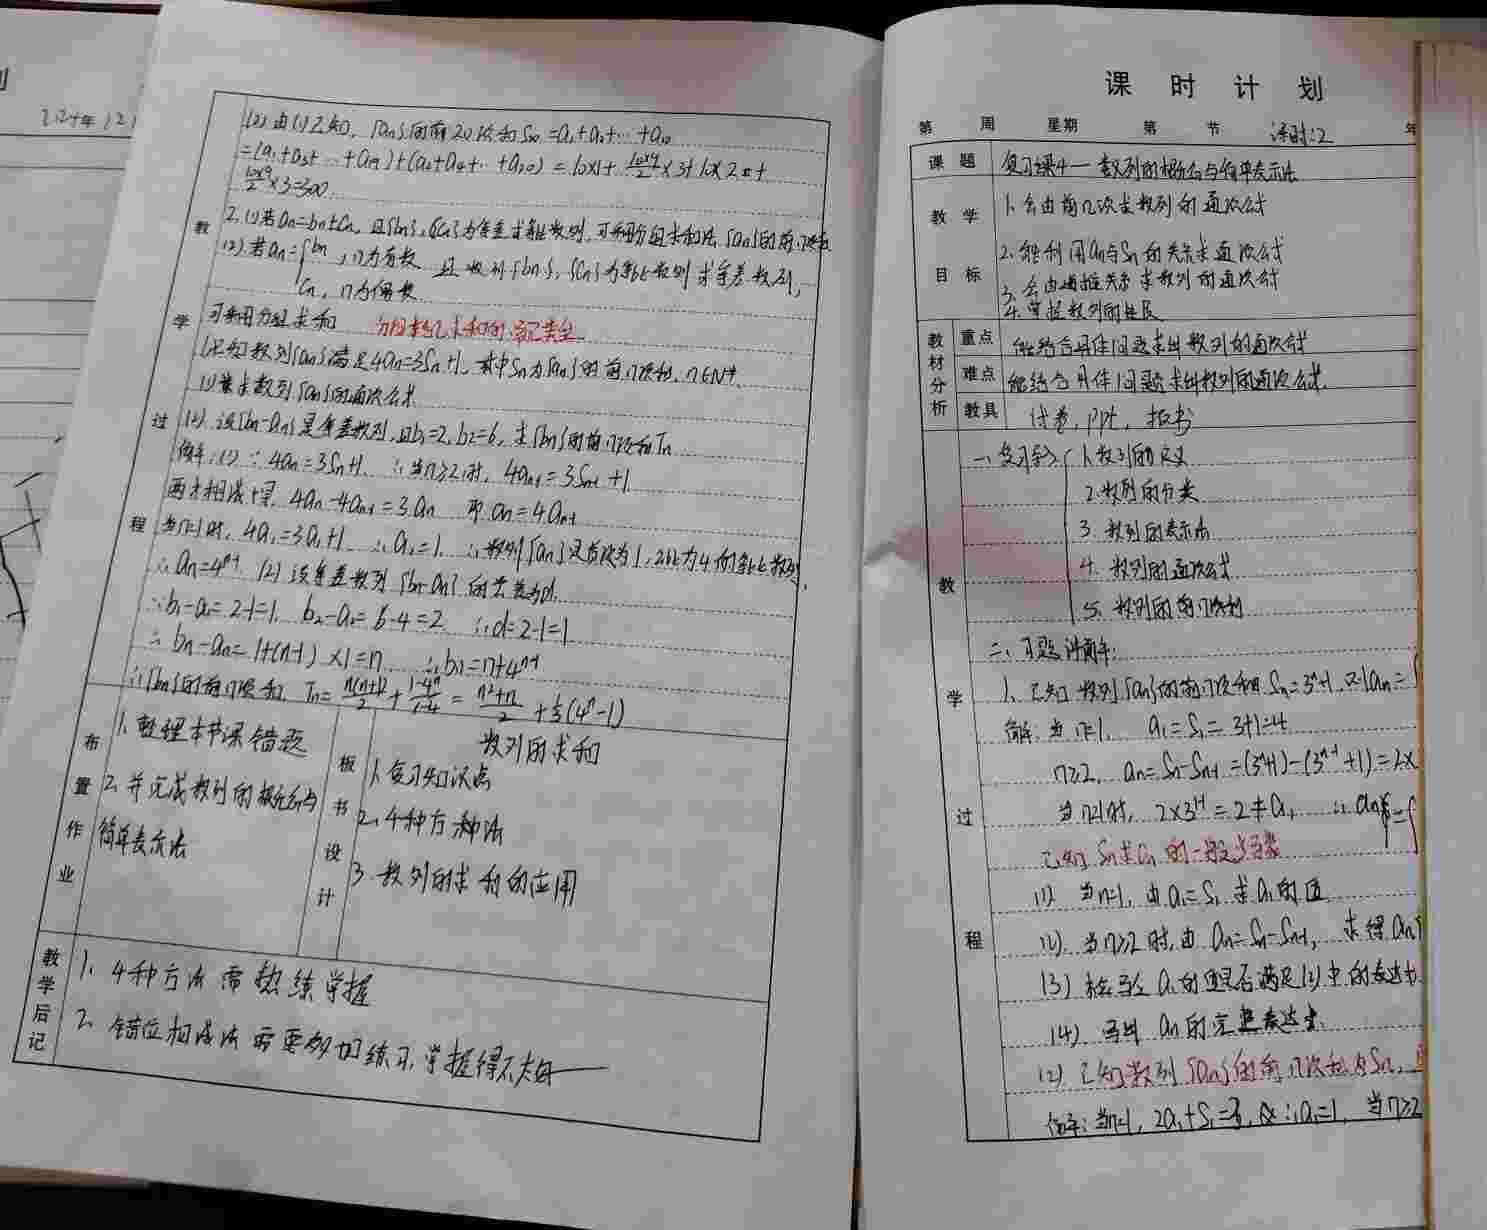 划
(2) 由(1)已知, {an}的前20项和S20=a1+a2+…+a20
=(a1+a3+…+a19)+(a2+a4+…+a20)=10×1+10×9/2×3+10×2+
10×9/2×3=300
2.(1)若an=bn+cn,且{bn},{cn}为等差或等比数列,可采用分组求和法 {an}的前n项和
(2)若an={bn,n为奇数 且数列{bn},{cn}为等比数列或等差数列,
cn,n为偶数
可采用分组求和
已知数列{an}满足4an=3Sn+1,其中Sn为{an}的前n项和,n∈N*
(1)求数列{an}的通项公式
(2)设{bn-an}是等差数列,且b1=2,b2=6,求{bn}的前n项和Tn
解:(1)∵4an=3Sn+1 ∴当n≥2时,4an-1=3Sn-1+1
两式相减得,4an-4an-1=3an 即an=4an-1
当n=1时,4a1=3a1+1 ∴a1=1 ∴数列{an}是首项为1,公比为4的等比数列
∴an=4^(n-1) (2)设等差数列{bn-an}的公差为d
∵b1-a1=2-1=1 b2-a2=6-4=2 ∴d=2-1=1
∴bn-an=1+(n-1)×1=n ∴bn=n+4^(n-1)
∴{bn}的前n项和 Tn=n(n+1)/2+(1-4^n)/(1-4)=(n²+n)/2+1/3(4^n-1)
教学过程
布置作业
1、整理本节课错题
2、并完成数列的概念与
简单表示法
板书设计
数列的求和
1、复习知识点
2、4种方法
3、数列的求和的应用
教学后记
1、4种方法需熟练掌握
2、错位相减法需要多加练习,掌握得不太好
课时计划
第 周 星期 第 节 课时:2 年
课题 复习课4——数列的概念与简单表示法
教学目标
1、会由前几项求数列的通项公式
2、能利用an与Sn的关系求通项公式
3、会由递推关系求数列的通项公式
4、掌握数列的性质
教材分析
重点 能结合具体问题求出数列的通项公式
难点 能结合具体问题求出数列的通项公式
教具 试卷,PPt,板书
教学过程
一、复习导入 1、数列的定义
2、数列的分类
3、数列的表示法
4、数列的通项公式
5、数列的前n项和
二、习题讲解:
1、已知数列{an}的前n项和Sn=3^n+1,则an=
解:当n=1, a1=S1=3+1=4
n≥2, an=Sn-Sn-1=(3^n+1)-(3^(n-1)+1)=2×
当n=1时,2×3^(1-1)=2≠a1, ∴an={
已知Sn求an的一般步骤
(1) 当n=1,由a1=S1求a1的值
(2)、当n≥2时,由an=Sn-Sn-1,求得an
(3)检验a1的值是否满足(2)中的表达式
(4)写出an的完整表达式
(2)已知数列{an}的前n项和为Sn,
解:当n=1,2a1+S1=3,∴a1=1 当n≥2